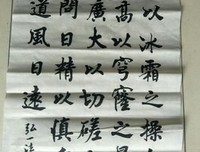 以冰霜之操
高以穹窿之
廣大以切磋
問日精以慎
道風日遠
弘一法